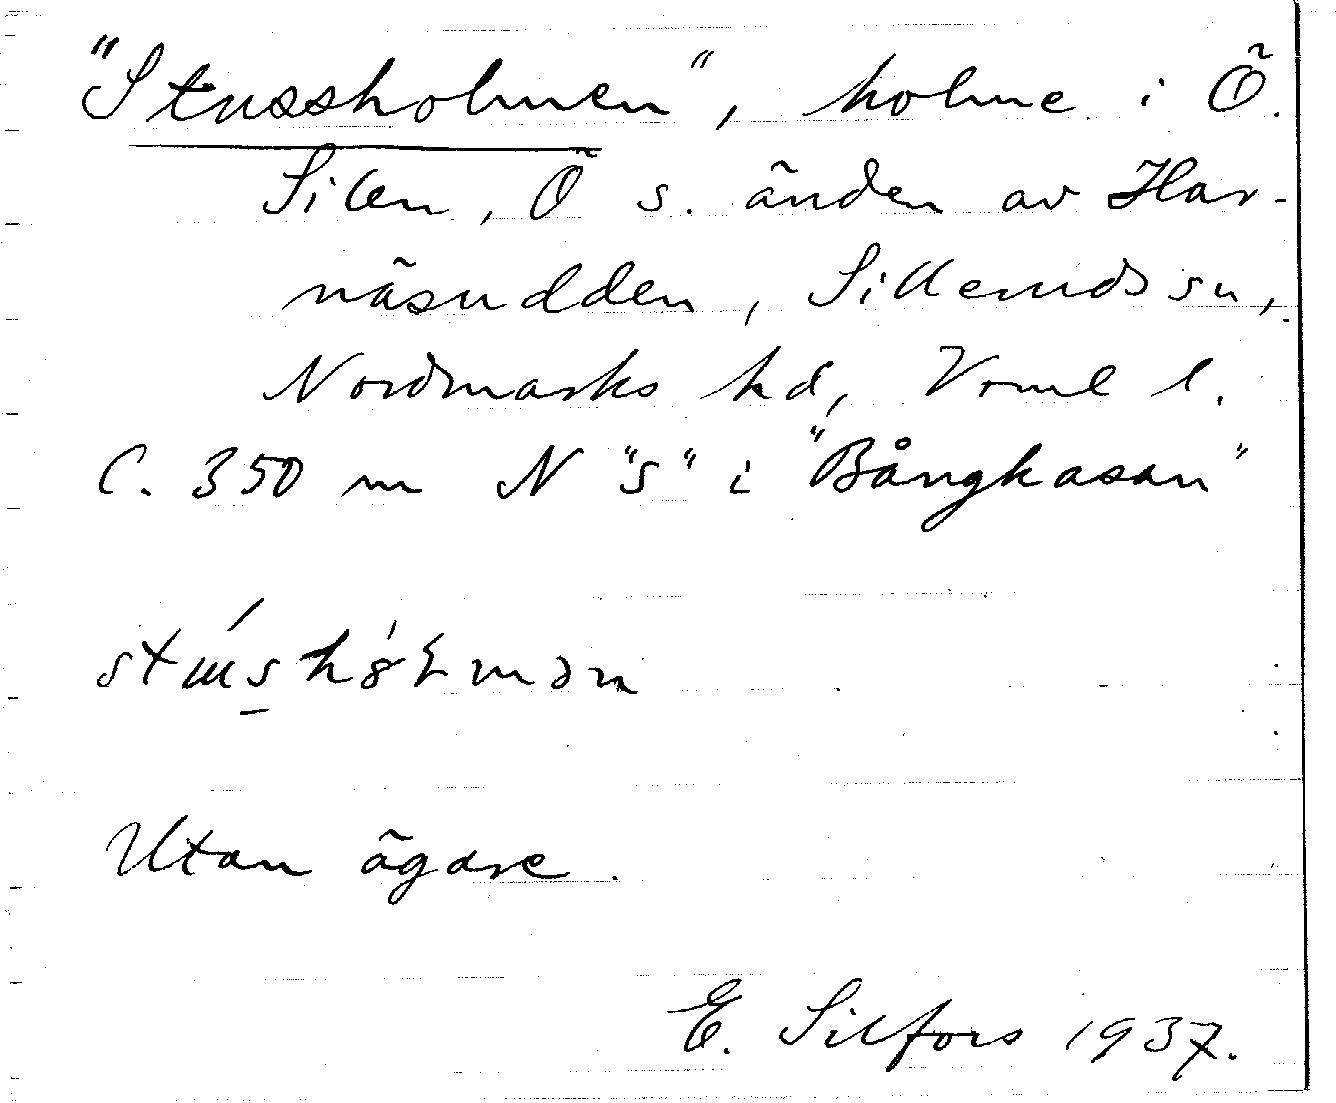 "Stussholmen", holme i Ö.
Silen, Ö s. änden av Har-
näsudden, Sillerudssn,
Nordmarks hd, Vrml l.
C. 350 m N "s" i "Bångkasan"
Utan ägare.
E. Silfors 1937.